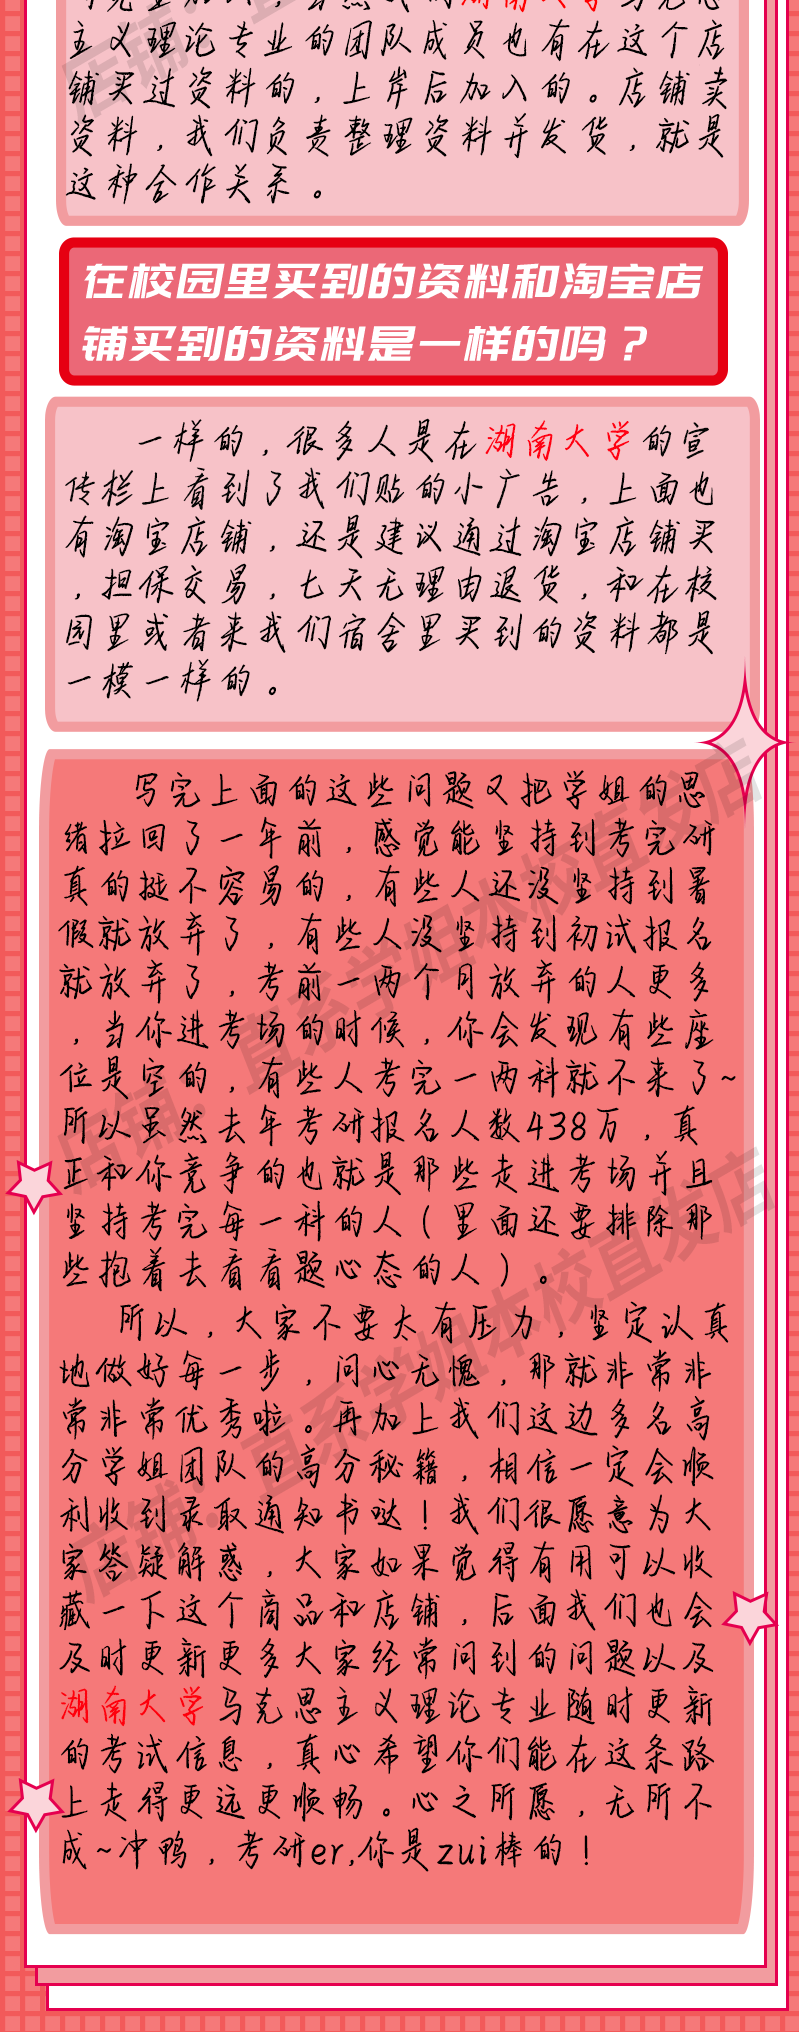 湖南大学马克思
主义理论专业的团队成员也有在这个店
铺买过资料的，上岸后加入的。店铺卖
资料，我们负责整理资料并发货，就是
这种合作关系。
在校园里买到的资料和淘宝店
铺买到的资料是一样的吗？
一样的，很多人是在湖南大学的宣
传栏上看到了我们贴的小广告，上面也
有淘宝店铺，还是建议通过淘宝店铺买
，担保交易，七天无理由退货，和在校
园里或者来我们宿舍里买到的资料都是
一模一样的。
写完上面的这些问题又把学姐的思
绪拉回了一年前，感觉能坚持到考完研
真的挺不容易的，有些人还没坚持到暑
假就放弃了，有些人没坚持到初试报名
就放弃了，考前一两个月放弃的人更多
，当你进考场的时候，你会发现有些座
位是空的，有些人考完一两科就不来了~
所以虽然去年考研报名人数438万，真
正和你竞争的也就是那些走进考场并且
坚持考完每一科的人（里面还要排除那
些抱着去看看题心态的人）。
所以，大家不要太有压力，坚定认真
地做好每一步，问心无愧，那就非常非
常非常优秀啦。再加上我们这边多名高
分学姐团队的高分秘籍，相信一定会顺
利收到录取通知书哒！我们很愿意为大
家答疑解惑，大家如果觉得有用可以收
藏一下这个商品和店铺，后面我们也会
及时更新更多大家经常问到的问题以及
湖南大学马克思主义理论专业随时更新
的考试信息，真心希望你们能在这条路
上走得更远更顺畅。心之所愿，无所不
成~冲鸭，考研er,你是zui棒的！
店铺：直系学姐本校直发店
店铺：直系学姐本校直发店